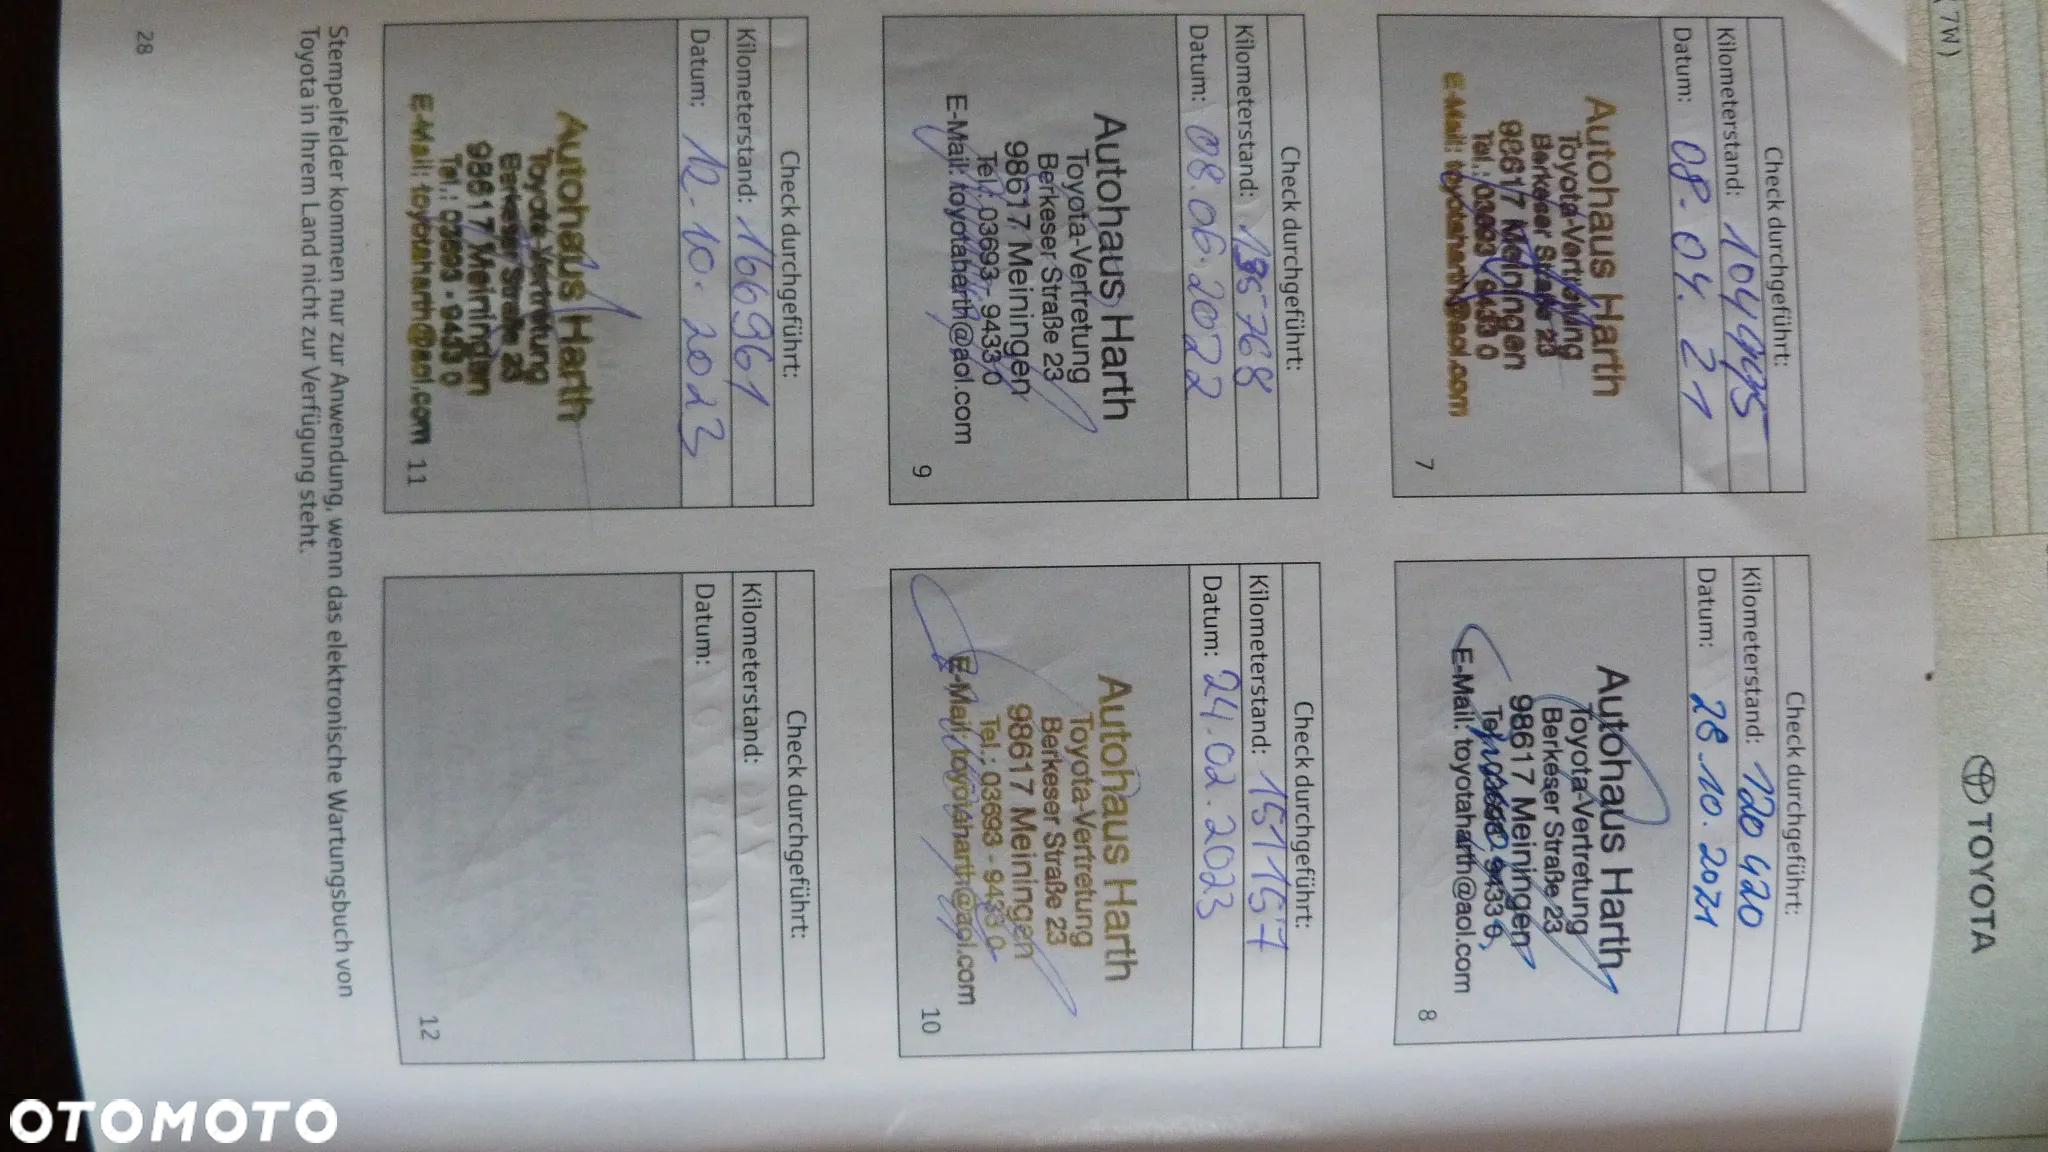 7W)
TOYOTA
Check durchgeführt:
Kilometerstand: 104995
Datum: 08.04.21
Autohaus Harth
Toyota-Vertretung
Berkeser Straße 23
98617 Meiningen
Tel.: 03693 - 9433 0
E-Mail: toyotaharth@aol.com
7
Check durchgeführt:
Kilometerstand: 120 420
Datum: 28.10.2021
Autohaus Harth
Toyota-Vertretung
Berkeser Straße 23
98617 Meiningen
Tel.: 03693 - 9433 0
E-Mail: toyotaharth@aol.com
8
Check durchgeführt:
Kilometerstand: 135768
Datum: 08.06.2022
Autohaus Harth
Toyota-Vertretung
Berkeser Straße 23
98617 Meiningen
Tel.: 03693 - 9433 0
E-Mail: toyotaharth@aol.com
9
Check durchgeführt:
Kilometerstand: 151157
Datum: 24.02.2023
Autohaus Harth
Toyota-Vertretung
Berkeser Straße 23
98617 Meiningen
Tel.: 03693 - 9433 0
E-Mail: toyotaharth@aol.com
10
Check durchgeführt:
Kilometerstand: 166961
Datum: 12.10.2023
Autohaus Harth
Toyota-Vertretung
Berkeser Straße 23
98617 Meiningen
Tel.: 03693 - 9433 0
E-Mail: toyotaharth@aol.com
11
Check durchgeführt:
Kilometerstand:
Datum:
12
Stempelfelder kommen nur zur Anwendung, wenn das elektronische Wartungsbuch von
Toyota in Ihrem Land nicht zur Verfügung steht.
28
OTOMOTO